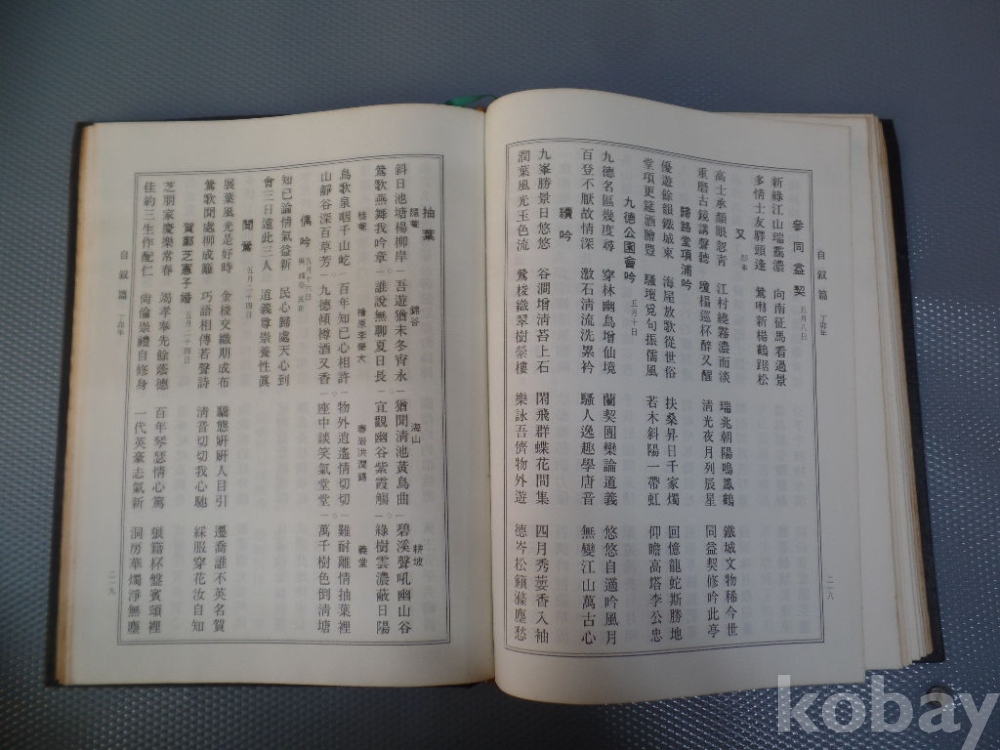 自叙篇 丁卯年
參同益契 五月八日
新綠江山瑞靄濃 向南征馬看過景
多情士友驛頭逢 鶯啉新楊鶴踞松
又
高士承顔眼忽青 江村繞霧濃而淡 瑞兆朝陽鳴鳳鶴 鐵城文物稀今世
重磨古鏡講聲聽 瓊樹巡杯醉又醒 淸光夜月列辰星 同益契修吟此亭
歸路堂項浦吟
優遊餘韻鐵城東 海屋放歌從世俗 扶桑昇日千家燭 回憶龍蛇斯勝地
堂項更延酒膾豐 騷壇覓句振儒風 若木斜陽一帶虹 仰瞻高塔李公忠
九德公園會吟 五月十日
九德名區幾度尋 穿林幽鳥增仙境 蘭契團欒論道義 悠悠自適吟風月
百登不厭故情深 激石淸流洗累衿 騷人逸趣學唐音 無變江山萬古心
續吟
九峯勝景日悠悠 谷澗增淸苔上石 閑飛群蝶花間集 四月秀葽香入袖
潤葉風光玉色流 鶯梭織翠樹縈樓 樂詠吾儕物外遊 德岑松籟滌塵愁
二一八
抽葉
錦谷 海山 耕坡
斜日池塘楊柳岸 吾遊猶未冬宵永 猶聞淸池黃鳥曲 碧溪聲吼幽山谷
鶯歌燕舞我吟章 誰說無聊夏日長 宜觀幽谷紫霞觴 綠樹雲濃蔽日陽
義堂
鳥歌泉咽千山屹 百年知己心相許 物外逍遙情切切 難耐離情抽葉裡
山靜谷深百草芳 九德傾樽酒又香 座中談笑氣堂堂 萬千樹色倒淸塘
偶吟 五月十六日
知已論情氣益新 民心歸處天心到
會三日遠此三人 道義尊崇養性眞
聞鶯 五月二十四日
展葉風光是好時 金梭交織期成布 驕態姸姸人目引 遷喬誰不英名賀
鶯歌聞處柳成籬 巧語相傳若聲詩 淸音切切我心馳 綵服穿花汝自知
賀鄭芝憲子婚 五月二十四日
芝朋家慶樂常春 竭孝奉先餘蔭德 百年琴瑟情心篤 狼籍杯盤賓頌裡
佳約三生作配仁 尙倫崇禮自修身 一代英豪志氣新 洞房華燭淨無塵
自叙篇 丁卯年
二一九
kobay